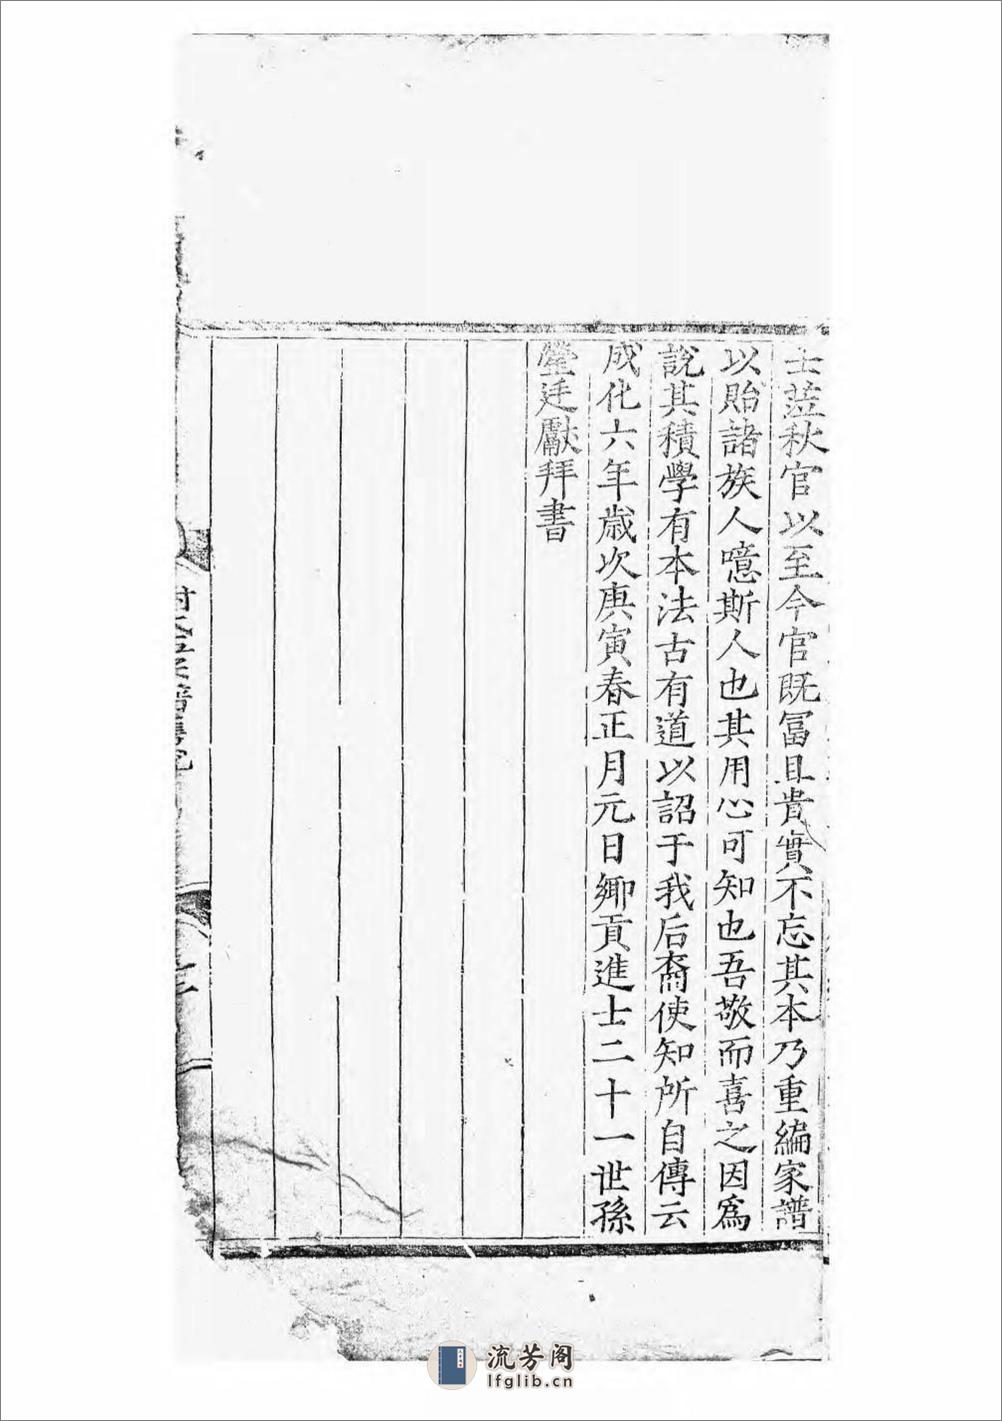 士莅秋官以至今官既冨且貴實不忘其本乃重編家譜
以貽諸族人噫斯人也其用心可知也吾敬而喜之因爲
說其積學有本法古有道以詔于我后裔使知所自傳云
成化六年歲次庚寅春正月元日鄉貢進士二十一世孫
瑩廷獻拜書
流芳阁
lfglib.cn